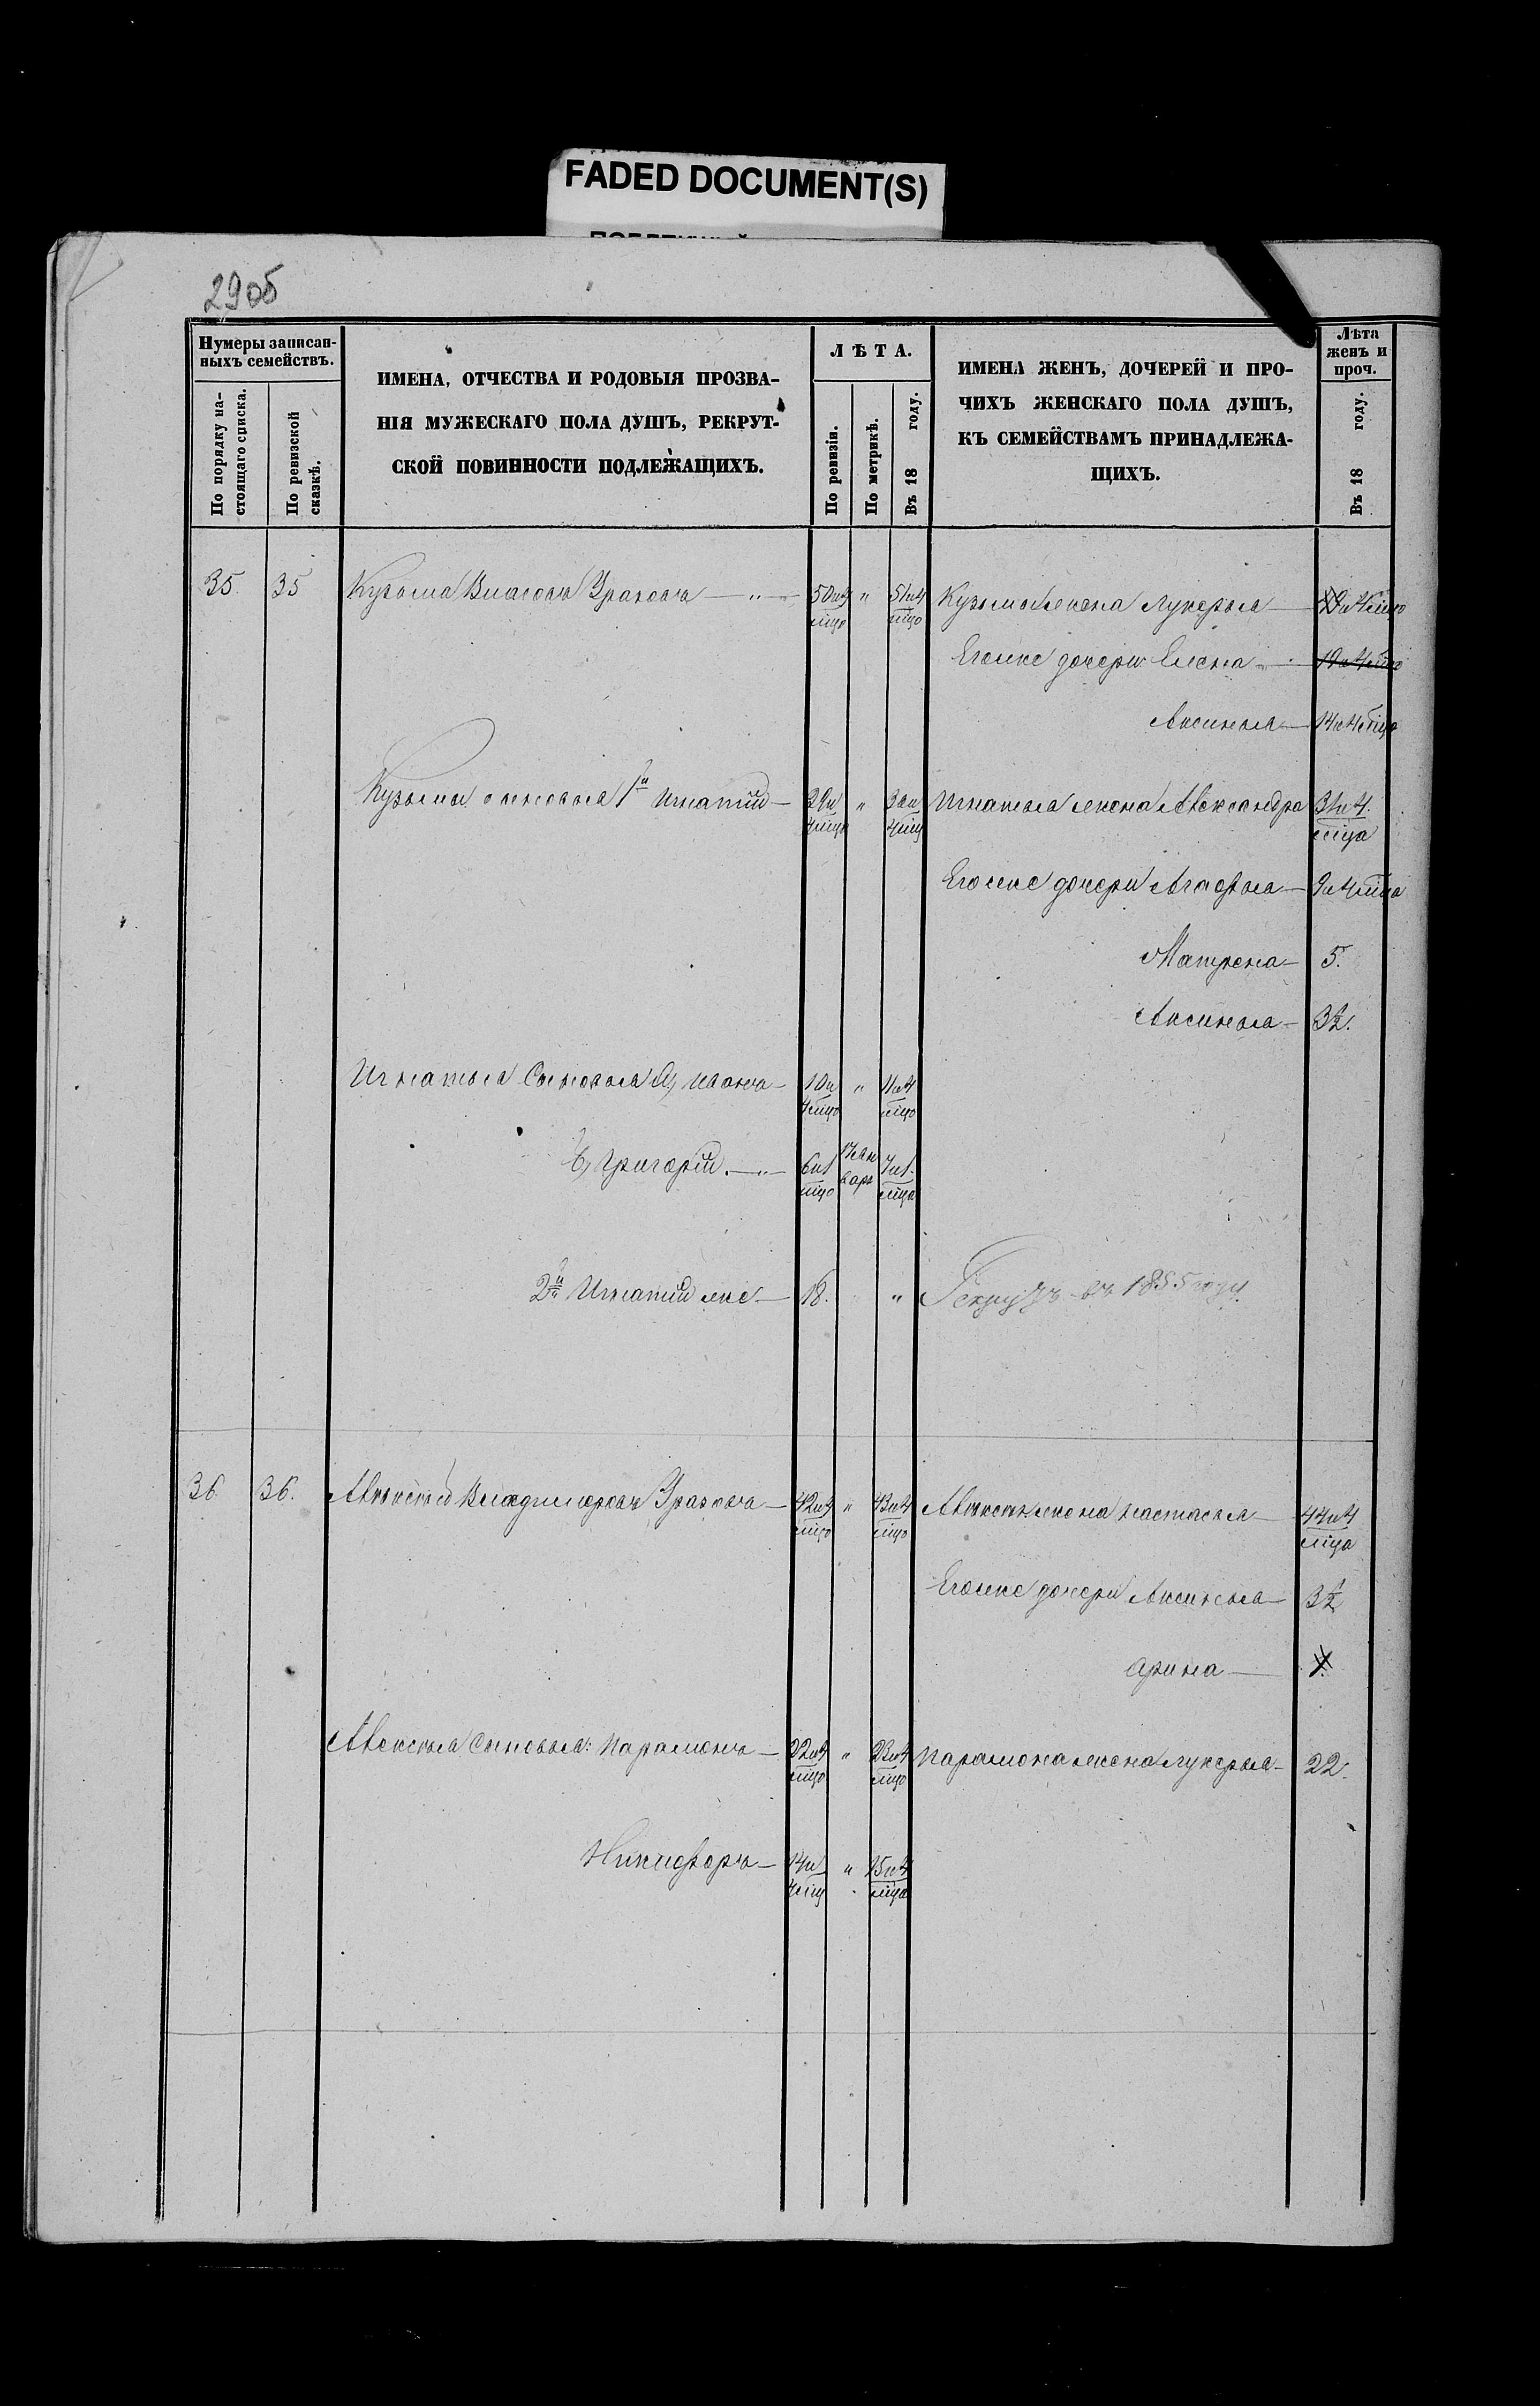 FADED DOCUMENT(S)
29об
Нумеры записан-
ныхъ семействъ.
По порядку на-
стоящаго списка.
По ревизской
сказкѣ.
ИМЕНА, ОТЧЕСТВА И РОДОВЫЯ ПРОЗВА-
НІЯ МУЖЕСКАГО ПОЛА ДУШЪ, РЕКРУТ-
СКОЙ ПОВИННОСТИ ПОДЛЕЖАЩИХЪ.
ЛѢТА.
По ревизіи.
По метрикѣ.
Въ 18 году.
ИМЕНА ЖЕНЪ, ДОЧЕРЕЙ И ПРО-
ЧИХЪ ЖЕНСКАГО ПОЛА ДУШЪ,
КЪ СЕМЕЙСТВАМЪ ПРИНАДЛЕЖА-
ЩИХЪ.
Лѣта
женъ и
проч.
Въ 18 году.
35. 35 Кузьма Власовъ — " — 50 и 4 мца " 51 и 4 мца Кузьмы жена Лукерья —
Его же дочери: Елена — 19 и 4 мца
Аксинья — 14 и 4 мца
Кузьмы сыновья 1й Игнатій — 29 и 4 мца " 30 и 4 мца Игнатья жена Александра 31 и 4 мца
Его же дочери Агафья — 9 и 4 мца
Матрена — 5.
Аксинья — 3½.
Игнатья Сыновья а, Иванъ — 10 и 4 мца " 11 и 4 мца
б, Григорій. — " — 6 и 1 мца Ян варя 7 и 1 мца
2й Игнатій же — 18. " Рекрутъ въ 1855 году.
36. 36. Владимеровъ — 42 и 4 мца " 43 и 4 мца жена Настасья — 44 и 4 мца
Его же дочери Аксинья — 3½
Арина — 1.
Сыновья: Парамонъ — 22 и 4 мца " 23 и 4 мца Парамона жена Лукерья — 22.
Никифоръ — 14 и 4 мца " 15 и 4 мца